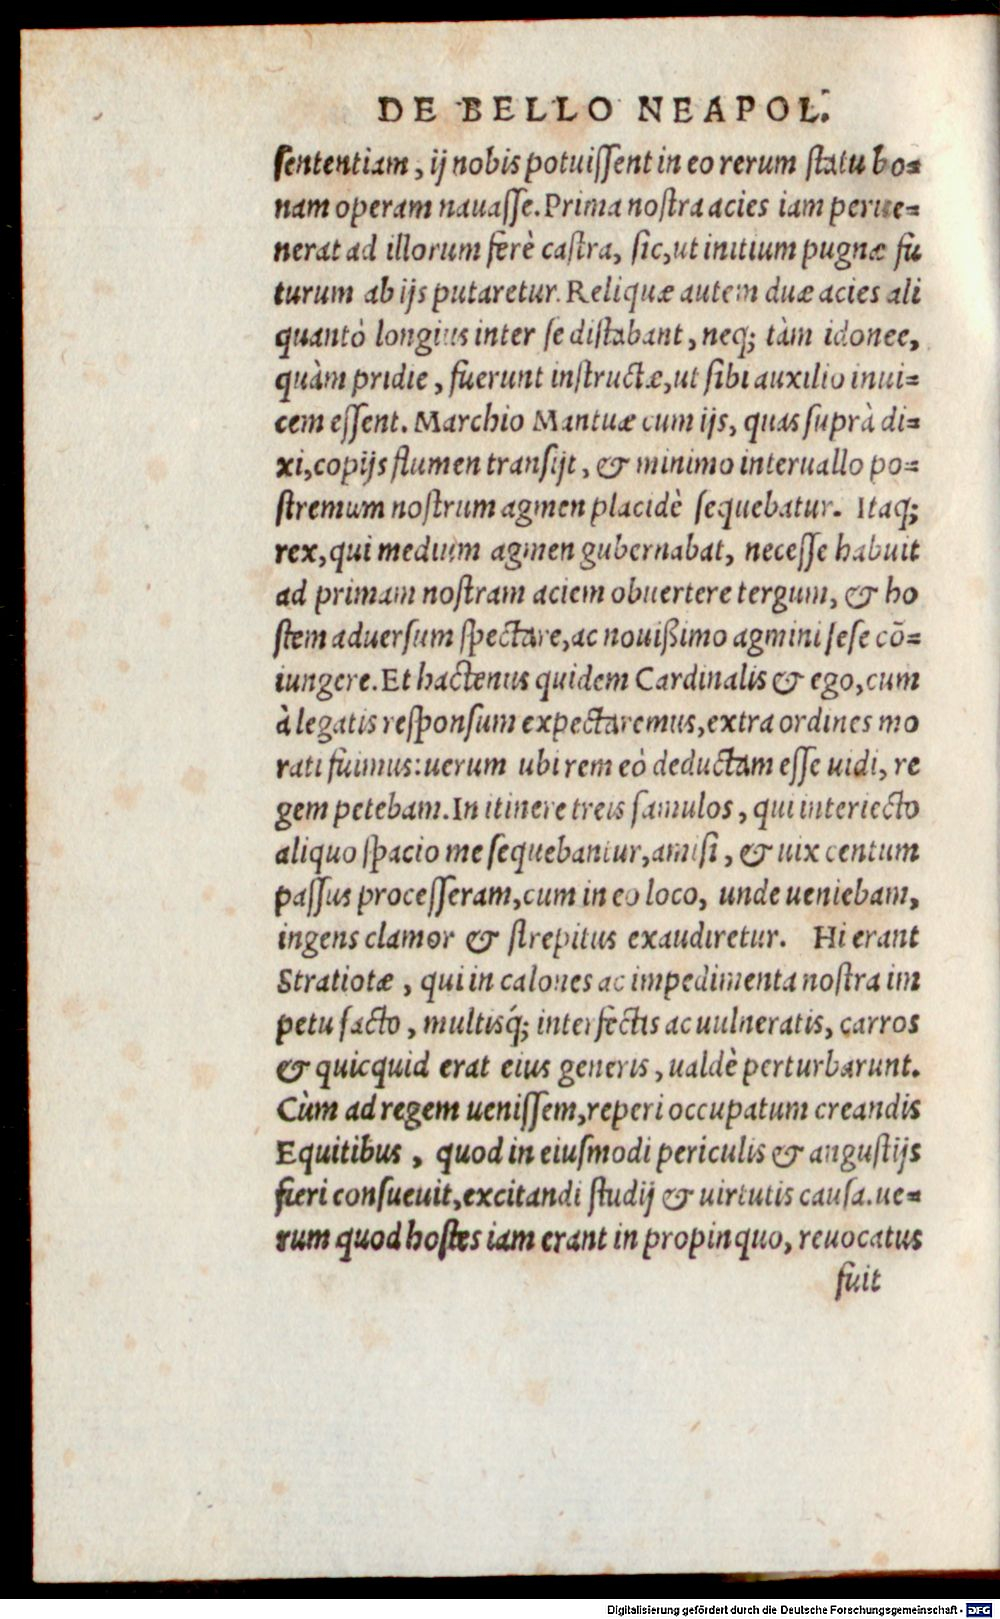 DE BELLO NEAPOL.
sententiam, ij nobis potuissent in eo rerum statu bo=
nam operam nauasse. Prima nostra acies iam perue=
nerat ad illorum ferè castra, sic, ut initium pugnæ fu
turum ab ijs putaretur. Reliquæ autem duæ acies ali
quantò longius inter se distabant, neq; tàm idonee,
quàm pridie, fuerunt instructæ, ut sibi auxilio inui=
cem essent. Marchio Mantuæ cum ijs, quas suprà di=
xi, copijs flumen transijt, & minimo interuallo po=
stremum nostrum agmen placidè sequebatur. Itaq;
rex, qui medium agmen gubernabat, necesse habuit
ad primam nostram aciem obuertere tergum, & ho
stem aduersum spectare, ac nouißimo agmini sese cō=
iungere. Et hactenus quidem Cardinalis & ego, cum
à legatis responsum expectaremus, extra ordines mo
rati fuimus: uerum ubi rem eò deductam esse uidi, re
gem petebam. In itinere treis famulos, qui interiecto
aliquo spacio me sequebantur, amisi, & uix centum
passus processeram, cum in eo loco, unde ueniebam,
ingens clamor & strepitus exaudiretur. Hi erant
Stratiotæ, qui in calones ac impedimenta nostra im
petu facto, multisq́; interfectis ac uulneratis, carros
& quicquid erat eius generis, ualdè perturbarunt.
Cùm ad regem uenissem, reperi occupatum creandis
Equitibus, quod in eiusmodi periculis & angustijs
fieri consueuit, excitandi studij & uirtutis causa. ue=
rum quod hostes iam erant in propinquo, reuocatus
fuit
Digitalisierung gefördert durch die Deutsche Forschungsgemeinschaft - DFG